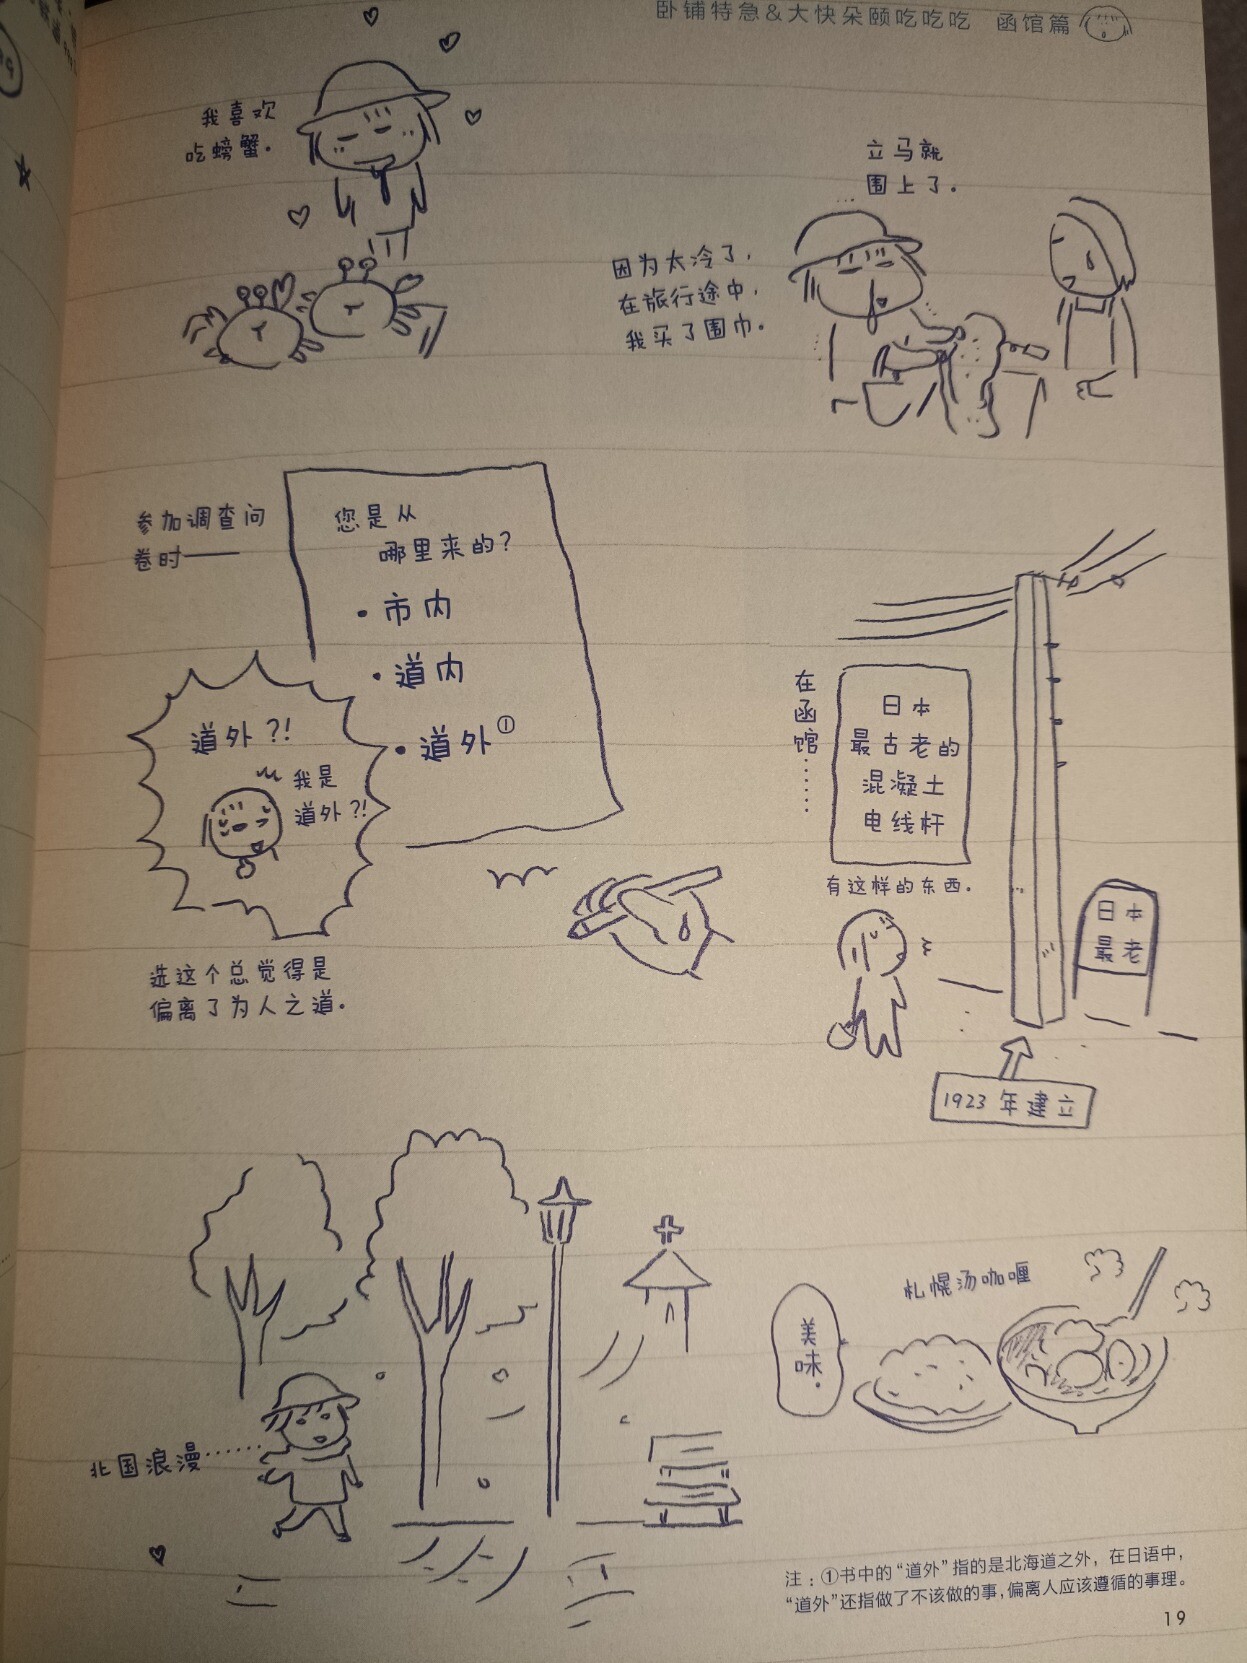 卧铺特急&大快朵颐吃吃吃 函馆篇
我喜欢
吃螃蟹.
立马就
围上了.
因为太冷了,
在旅行途中,
我买了围巾.
参加调查问
卷时——
您是从
哪里来的?
·市内
·道内
·道外①
道外?!
我是
道外?!
选这个总觉得是
偏离了为人之道.
在函馆……
日本
最古老的
混凝土
电线杆
有这样的东西.
日本
最老
1923年建立
北国浪漫……
札幌汤咖喱
美味.
注：①书中的“道外”指的是北海道之外，在日语中，
“道外”还指做了不该做的事，偏离人应该遵循的事理。
19